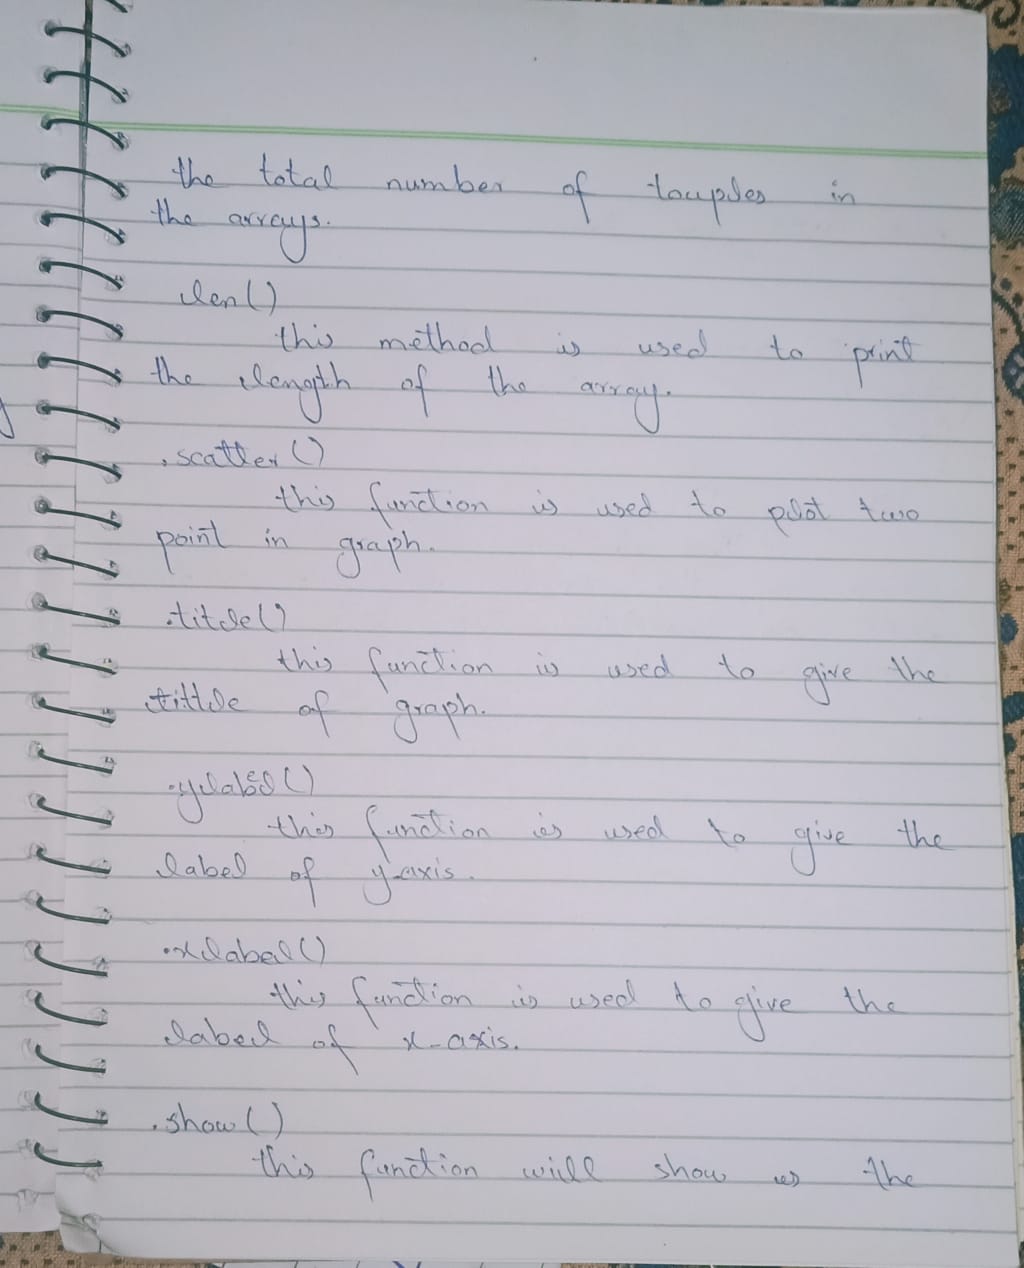 the total number of touples in
the arrays.
len()
this method is used to print
the length of the array.
.scatter()
this function is used to plot two
point in graph.
.title()
this function is used to give the
tittle of graph.
.ylabel()
this function is used to give the
label of y-axis.
.xlabel()
this function is used to give the
label of x-axis.
.show()
this function will show us the